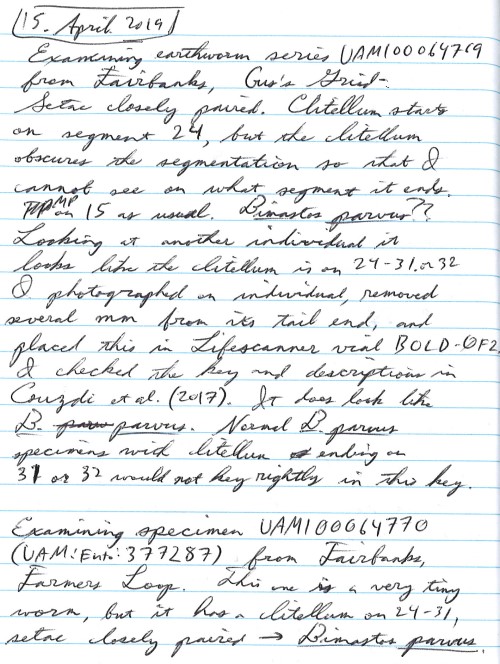 15. April 2019
Examining earthworm series UAM100064769
from Fairbanks, Gus's Grind.
Setae closely paired. Clitellum starts
on segment 24, but the clitellum
obscures the segmentation so that I
cannot see on what segment it ends.
MP on 15 as usual. Bimastos parvus??
Looking at another individual it
looks like the clitellum is on 24-31 or 32
I photographed an individual, removed
several mm from its tail end, and
placed this in Lifescanner vial BOLD-0F2.
I checked the key and descriptions in
Csuzdi et al. (2017). It does look like
B. parvus. Normal B. parvus
specimens with clitellum ending on
31 or 32 would not key rightly in this key.
Examining specimen UAM100064770
(UAM:Ento:377287) from Fairbanks,
Farmers Loop. This one is a very tiny
worm, but it has a clitellum on 24-31,
setae closely paired → Bimastos parvus.